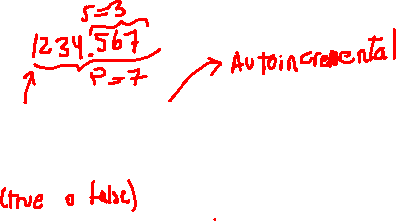 s=3
1234.567
P=7
Autoincremental
(true o false)